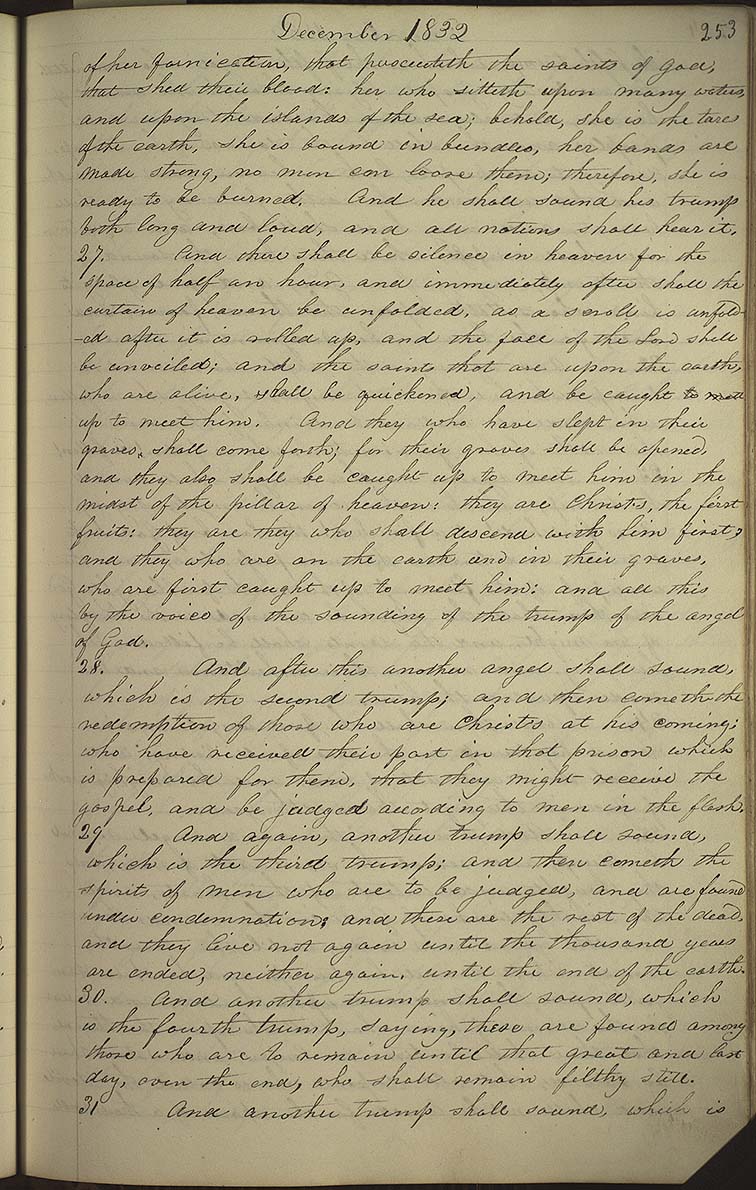 December 1832
253
of her fornication, that persecuteth the saints of God,
that shed their blood: her who sitteth upon many waters,
and upon the islands of the sea; behold, she is the tare
of the earth, she is bound in bundles, her bands are
made strong, no man can loose them; therefore, she is
ready to be burned. And he shall sound his trump
both long and loud, and all nations shall hear it.
27. And there shall be silence in heaven for the
space of half an hour, and immediately after shall the
curtain of heaven be unfolded, as a scroll is unfold-
-ed after it is rolled up, and the face of the Lord shall
be unveiled; and the saints that are upon the earth,
who are alive, shall be quickened, and be caught to meet
up to meet him. And they who have slept in their
graves, shall come forth; for their graves shall be opened,
and they also shall be caught up to meet him in the
midst of the pillar of heaven: they are Christs, the first
fruits: they are they who shall descend with him first;
and they who are on the earth and in their graves,
who are first caught up to meet him: and all this
by the voice of the sounding of the trump of the angel
of God.
28. And after this another angel shall sound,
which is the second trump; and then cometh the
redemption of those who are Christs at his coming:
who have received their part in that prison which
is prepared for them, that they might receive the
gospel, and be judged according to men in the flesh.
29 And again, another trump shall sound,
which is the third trump; and then cometh the
spirits of men who are to be judged, and are found
under condemnation; and these are the rest of the dead,
and they live not again until the thousand years
are ended, neither again, until the end of the earth.
30. And another trump shall sound, which
is the fourth trump, saying, these are found among
those who are to remain until that great and last
day, even the end, who shall remain filthy still.
31 And another trump shall sound, which is